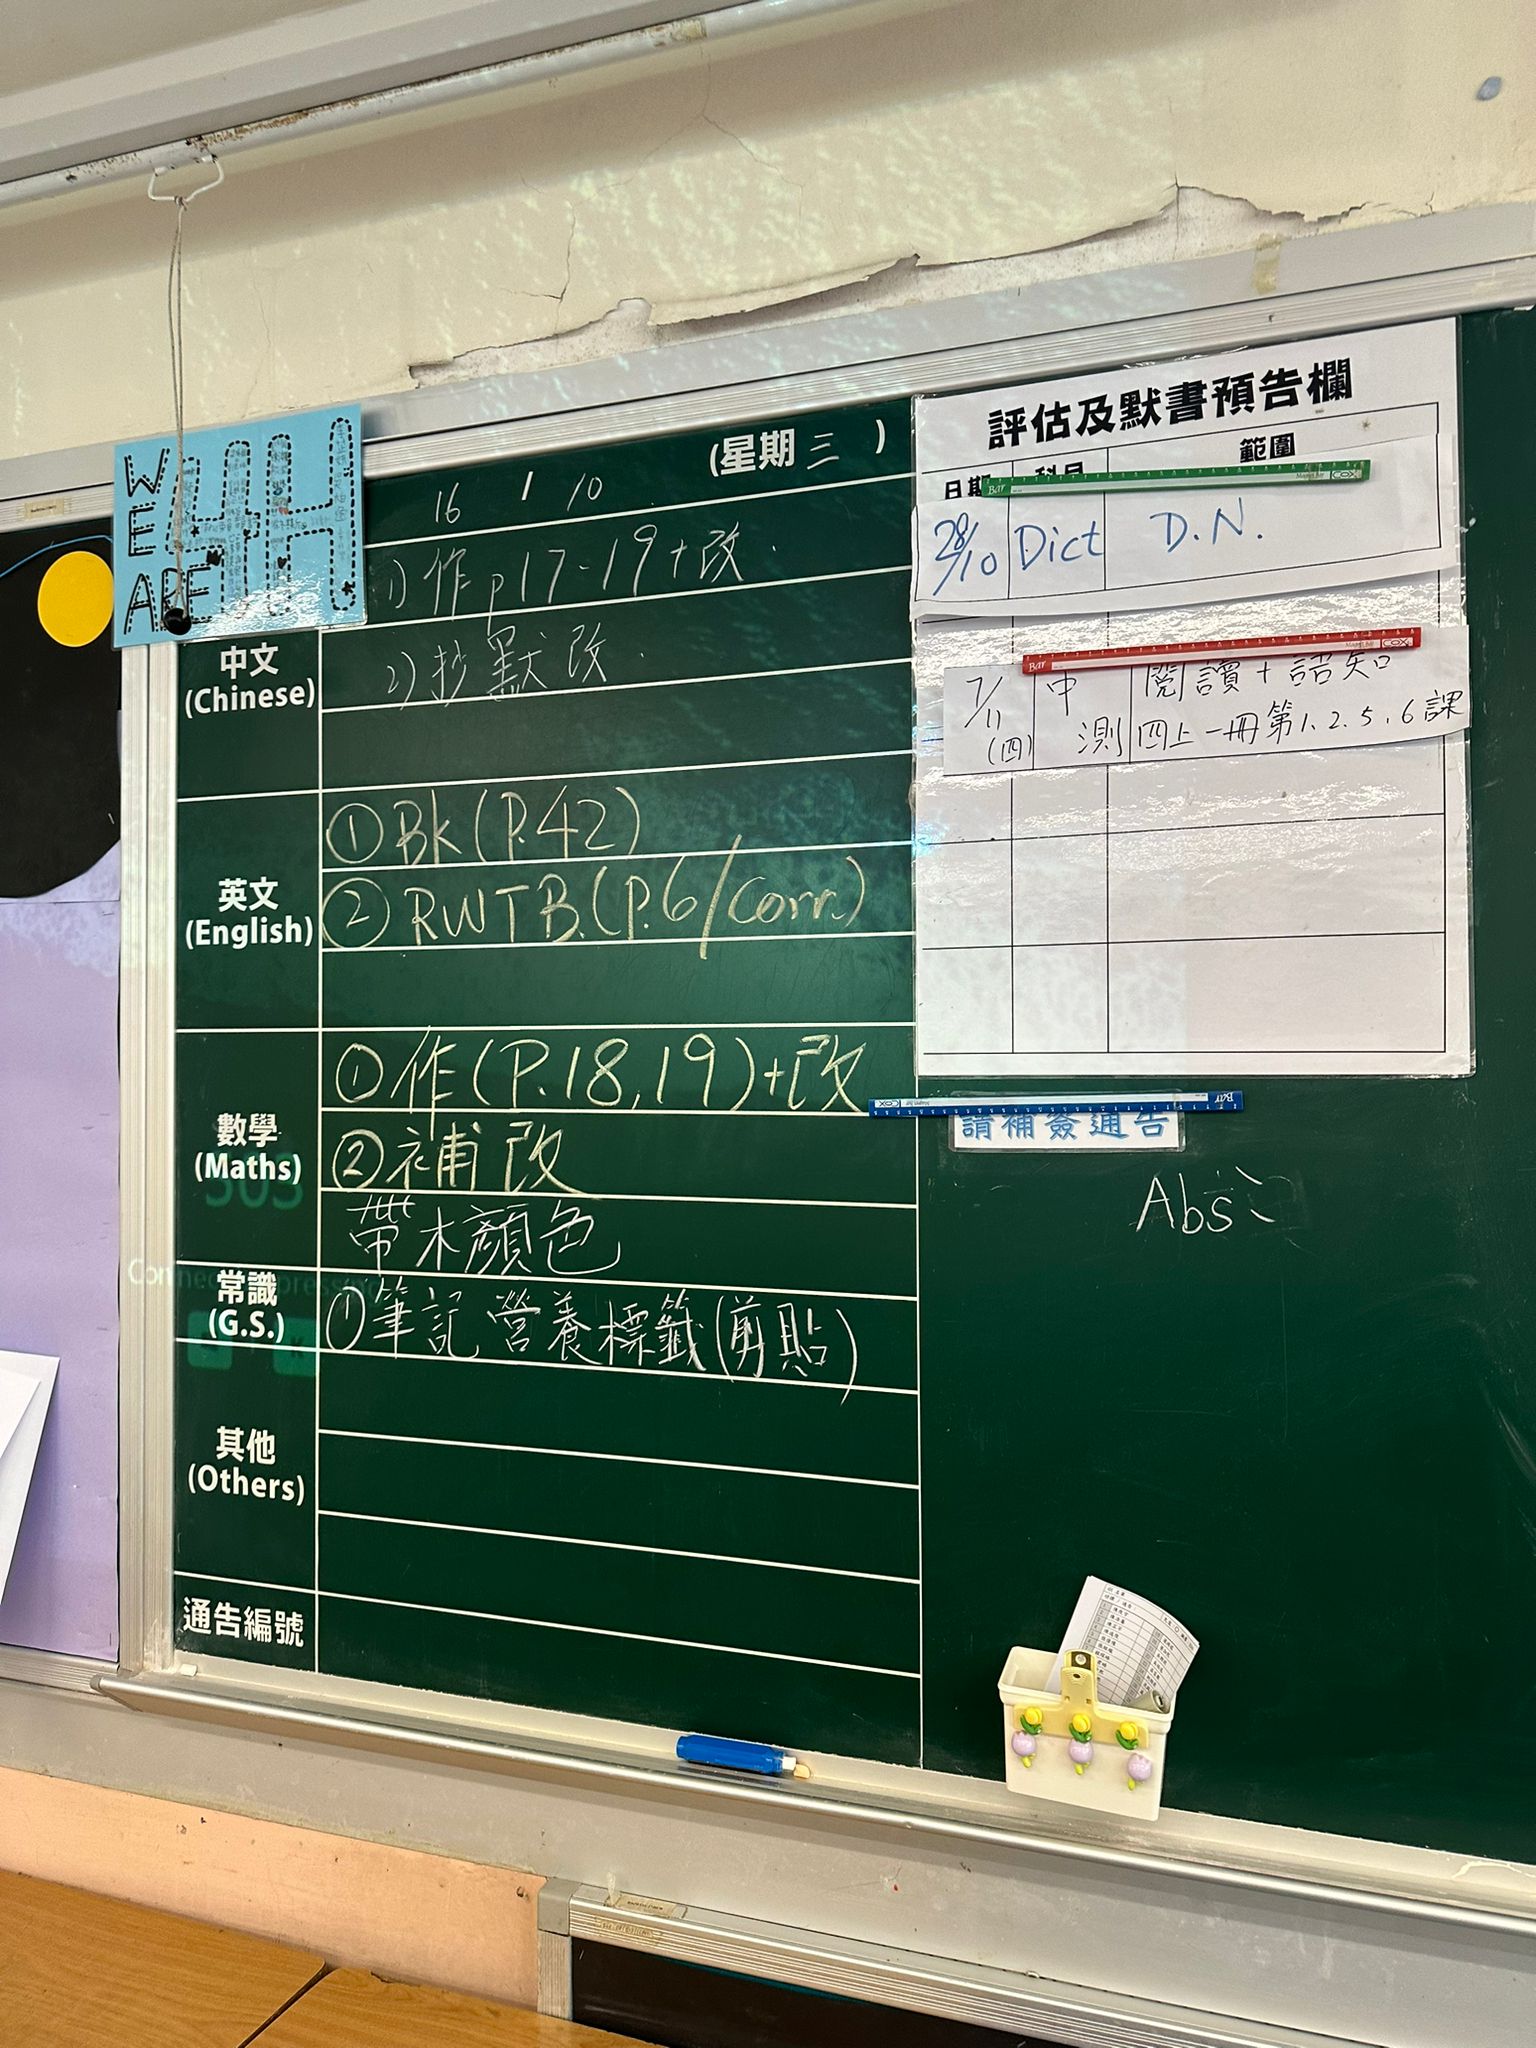 WE ARE 4H
16 / 10 (星期三)
中文
(Chinese)
1) 作 p17-19+改.
2) 抄默改.
英文
(English)
① Bk (P.42)
② RWTB. (P.6/corr.)
數學
(Maths)
① 作(P.18,19)+改
② 補改
帶木顏色
常識
(G.S.)
① 筆記 營養標籤(剪貼)
其他
(Others)
通告編號
評估及默書預告欄
日期 科目 範圍
28/10 Dict D.N.
7/11 (四) 中測 閱讀+語知
四上一冊第1.2.5.6課
請補簽通告
Abs: